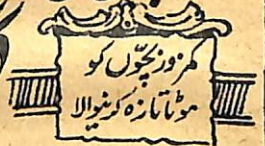 کمزور بچّوں کو
موٹا تازہ کرنیوالا